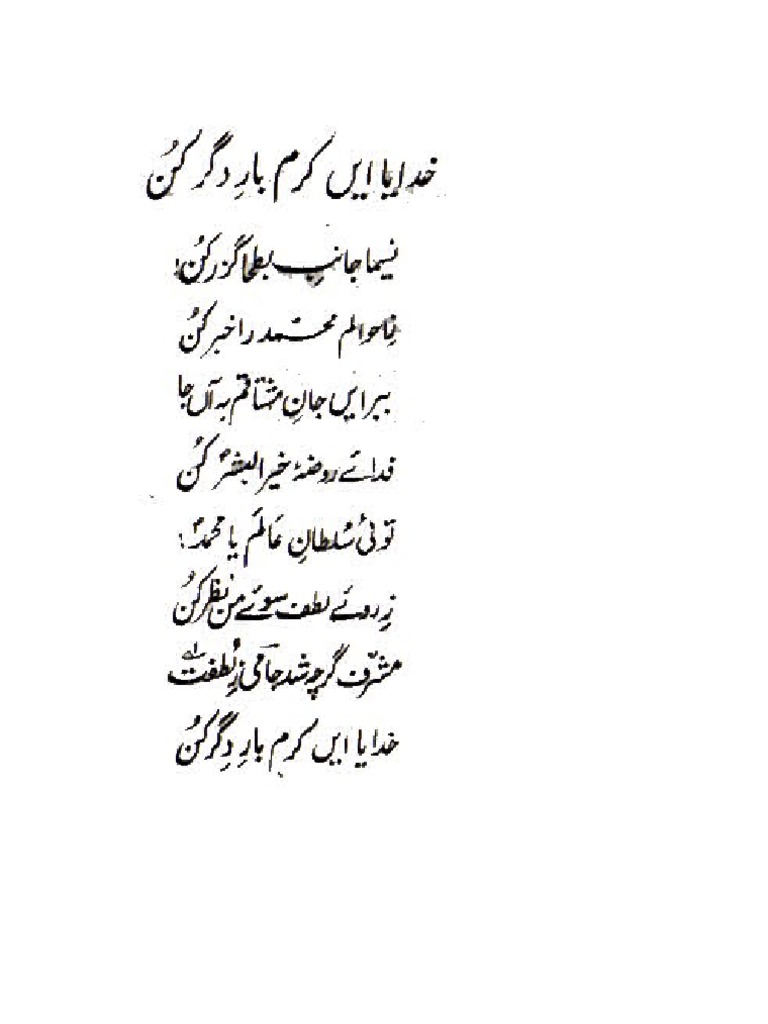 خدایا ایں کرم بارِ دگر کنُ
نسیما جانبِ بطحا گزر کنُ
زِاحوالم محمد را خبر کنُ
ببر ایں جانِ مشتاقم بہ آں جا
فدائے روضۂ خیر البشرؐ کنُ
توئی سُلطانِ عَالَم یا محمدؐ
زِ روئے لطف سوئے من نظر کنُ
مشرّف گرچہ شد جامی زِ لُطفت
خدایا ایں کرم بارِ دِگر کنُ